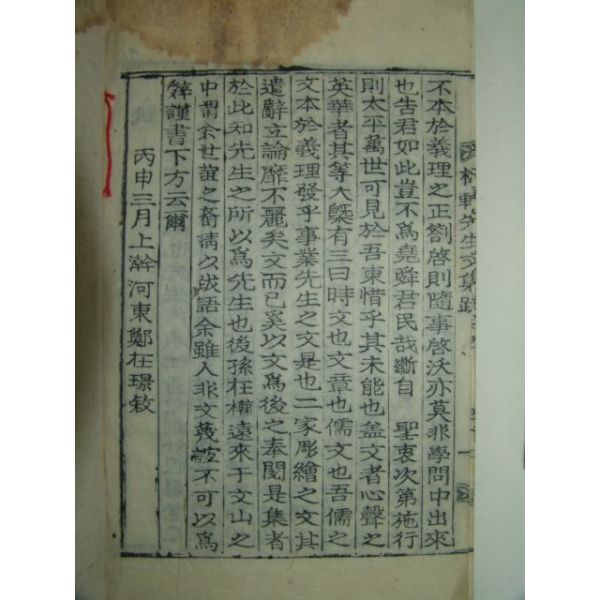 不本於義理之正劄啓則隨事啓沃亦莫非學問中出來
也告君如此豈不爲堯舜君民哉斷自 聖衷次第施行
則太平萬世可見於吾東惜乎其未能也盖文者心聲之
英華者其等大槩有三曰時文也文章也儒文也吾儒之
文本於義理發乎事業先生之文是也二家彫繪之文其
遣辭立論靡不麗矣文而已奚以文爲後之奉閱是集者
於此知先生之所以爲先生也後孫在權遠來于文山之
中謂余世誼之舊請以成語余雖人非文蔑證不可以爲
辤謹書下方云爾
丙申三月上澣河東鄭在璟敘
軒先生文集跋